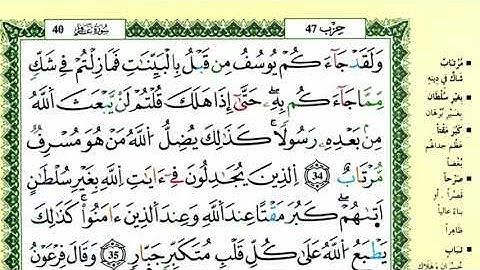 40
سُورَةُ غَافِر
حِزْب 47
وَلَقَدْ جَآءَكُمْ يُوسُفُ مِن قَبْلُ بِالْبَيِّنَٰتِ فَمَا زِلْتُمْ فِى شَكٍّ
مِّمَّا جَآءَكُم بِهِۦ حَتَّىٰٓ إِذَا هَلَكَ قُلْتُمْ لَن يَّبْعَثَ اَللَّهُ
مِنۢ بَعْدِهِۦ رَسُولًا كَذَٰلِكَ يُضِلُّ اُللَّهُ مَنْ هُوَ مُسْرِفٌ
مُّرْتَابٌ 34 اِلَّذِينَ يُجَٰدِلُونَ فِىٓ ءَايَٰتِ اِللَّهِ بِغَيْرِ سُلْطَٰنٍ
أَتَىٰهُمْ كَبُرَ مَقْتًا عِندَ اَللَّهِ وَعِندَ اَلَّذِينَ ءَامَنُوا۟ كَذَٰلِكَ
يَطْبَعُ اُللَّهُ عَلَىٰ كُلِّ قَلْبِ مُتَكَبِّرٍ جَبَّارٍ 35 وَقَالَ فِرْعَوْنُ
مُرْتَابٌ
شَاكٌّ فِي دِينِهِ
بِغَيْرِ سُلْطَانٍ
بِغَيْرِ بُرْهَانٍ
كَبُرَ مَقْتًا
عَظُمَ جِدَالُهُمْ
بُغْضًا
صَرْحًا
قَصْرًا . أو
بناءً عالياً
ظاهراً
تَبَاب
خُسْرَانٍ وَهَلَاكٍ